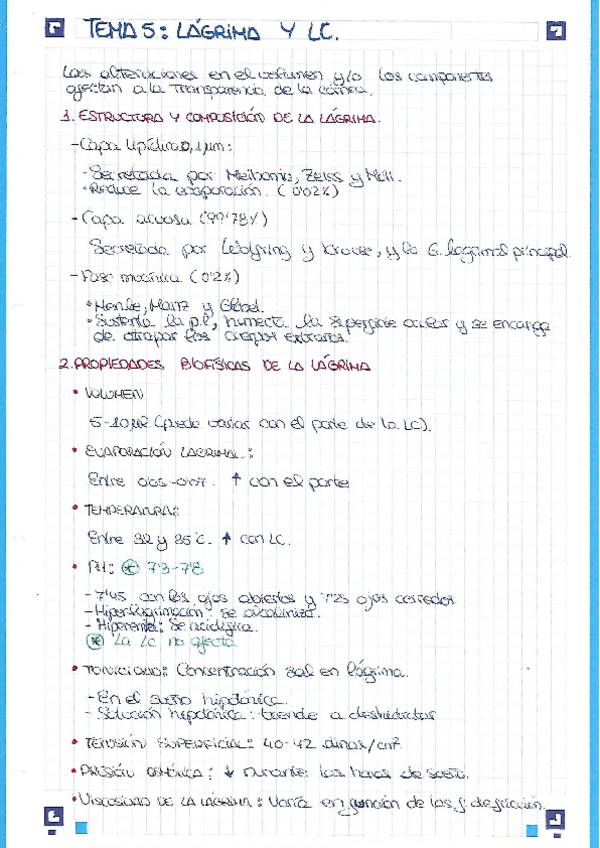 TEMA 5: LÁGRIMA Y LC.
Las alteraciones en el volumen y/o los componentes
afectan a la transparencia de la córnea.
1. ESTRUCTURA Y COMPOSICIÓN DE LA LÁGRIMA.
- Capa lipídica 0,1µm:
- Secretada por Meibomio, Zeiss y Moll.
- Reduce la evaporación. (0'02%)
- Capa acuosa (99'78%)
Secretada por Wolfring y Krause, y la G. lagrimal principal.
- Fase mucínica (0'2%)
• Henle, Manz y Globel.
• Sustenta la p.l, humecta la superficie ocular y se encarga
de atrapar los cuerpos extraños.
2. PROPIEDADES BIOFÍSICAS DE LA LÁGRIMA
• VOLUMEN
5-10µl (puede variar con el porte de la LC).
• EVAPORACIÓN LAGRIMAL:
Entre ↑ con el porte
• TEMPERATURA:
Entre 32 y 35°C. ↑ con LC.
• PH: * 7'3-7'8
- 7'45 con los ojos abiertos y 7'25 ojos cerrados.
- Hiperlagrimación: se alcaliniza.
- Se acidifica.
* La LC no afecta
• TONICIDAD: Concentración sal en lágrima.
- En el sueño hipotónica.
- Solución hipotónica: tiende a deshidratar
• TENSIÓN SUPERFICIAL: 40-42 dinas/cm²
• PRESIÓN OSMÓTICA: ↓ durante las horas de sueño.
• VISCOSIDAD DE LA LÁGRIMA: Varía en función de las f. de fricción.